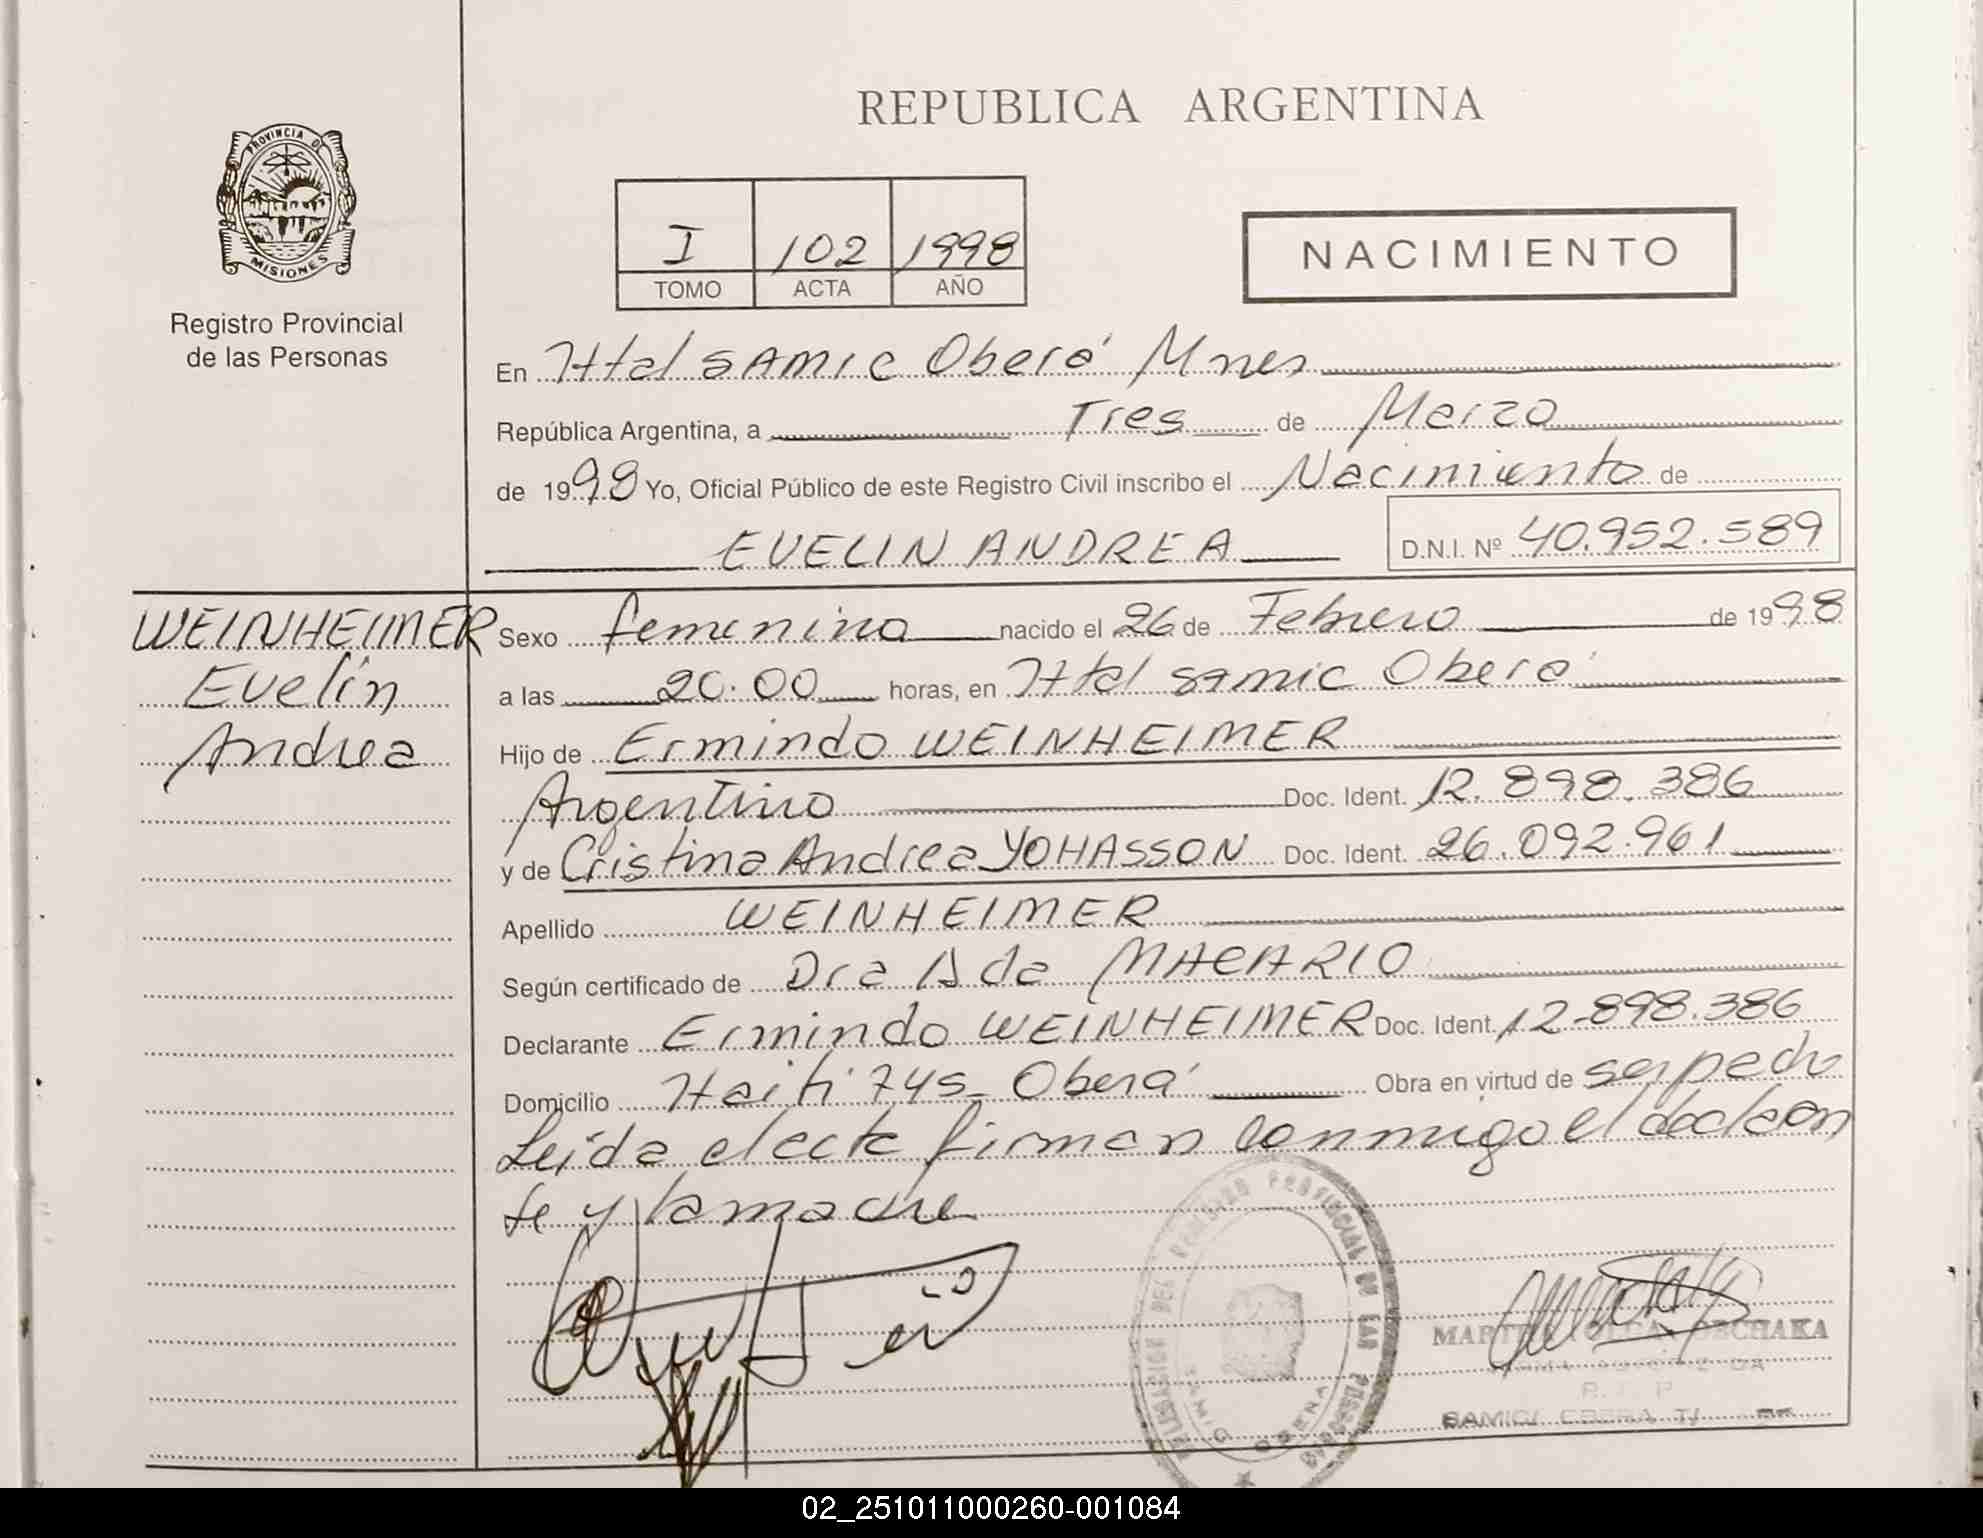 REPUBLICA ARGENTINA
PROVINCIA DE
MISIONES
Registro Provincial
de las Personas
I 102 1998
TOMO ACTA AÑO
NACIMIENTO
En Htal SAMIC Oberá Mnes
República Argentina, a Tres de Marzo
de 1998 Yo, Oficial Público de este Registro Civil inscribo el Nacimiento de
EVELIN ANDREA D.N.I. Nº 40.952.589
WEINHEIMER
Evelin
Andrea
Sexo femenino nacido el 26 de Febrero de 1998
a las 20.00 horas, en Htal samic Oberá
Hijo de Ermindo WEINHEIMER
Argentino Doc. Ident. 12.898.386
y de Cristina Andrea YOHASSON Doc. Ident. 26.092.961
Apellido WEINHEIMER
Según certificado de Dra Ada MACARIO
Declarante Ermindo WEINHEIMER Doc. Ident. 12.898.386
Domicilio Haiti 745 Oberá Obra en virtud de
Leida el acta firman conmigo el declaran
te y la madre
DELEGACION DEL REGISTRO PROVINCIAL DE LAS PERSONAS
SAMIC OBERA
02_251011000260-001084